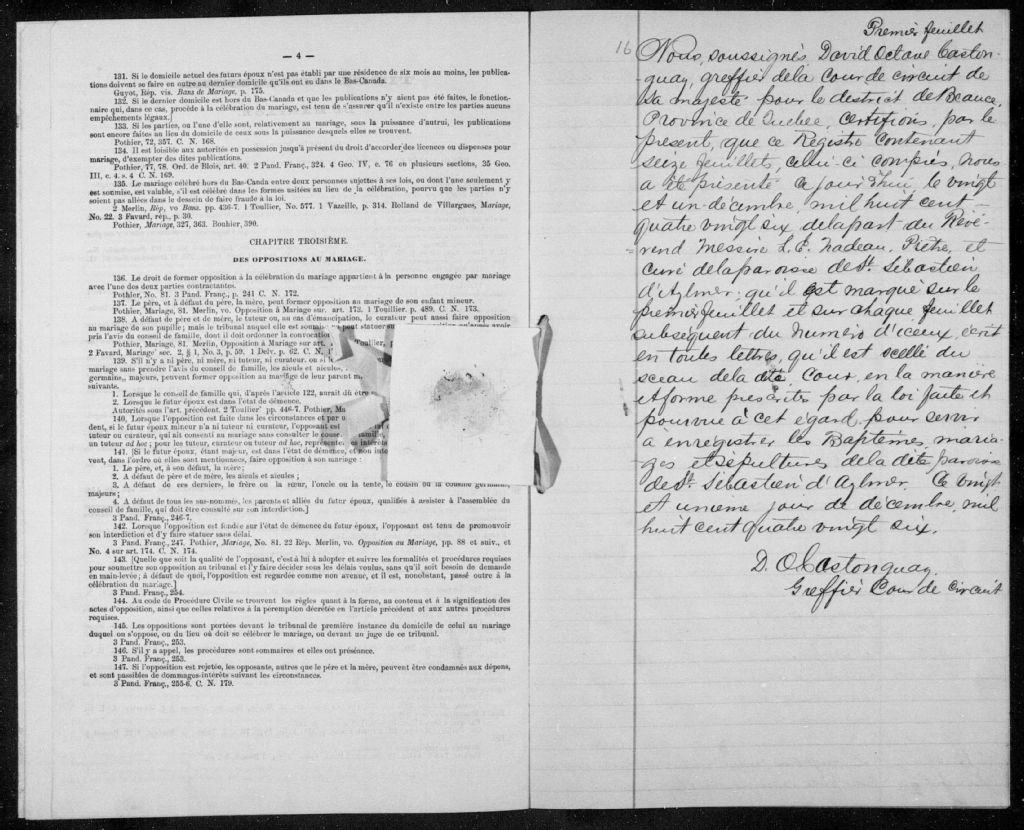 — 4 —
131. Si le domicile actuel des futurs époux n'est pas établi par une résidence de six mois au moins, les publica-
tions doivent se faire en outre au dernier domicile qu'ils ont eu dans le Bas-Canada.
Guyot, Rép. vis. Bans de Mariage, p. 175.
132. Si le dernier domicile est hors du Bas-Canada et que les publications n'y aient pas été faites, le fonction-
naire qui, dans ce cas, procède à la célébration du mariage, est tenu de s'assurer qu'il n'existe entre les parties aucuns
empêchements légaux.]
133. Si les parties, ou l'une d'elle sont, relativement au mariage, sous la puissance d'autrui, les publications
sont encore faites au lieu du domicile de ceux sous la puissance desquels elles se trouvent.
Pothier, 72, 357. C. N. 168.
134. Il est loisible aux autorités en possession jusqu'à présent du droit d'accorder des licences ou dispenses pour
mariage, d'exempter des dites publications.
Pothier, 77, 78. Ord. de Blois, art. 40. 2 Pand. Franç., 324. 4 Geo. IV, c. 76 en plusieurs sections, 35 Geo.
III, c. 4. s. 4 C. N. 169.
135. Le mariage célébré hors du Bas-Canda entre deux personnes sujettes à ses lois, ou dont l'une seulement y
est soumise, est valable, s'il est célébré dans les formes usitées au lieu de la célébration, pourvu que les parties n'y
soient pas allées dans le dessein de faire fraude à la loi.
2 Merlin, Rép, vo Bans. pp. 436-7. 1 Toullier, No. 577. 1 Vazeille, p. 314. Rolland de Villargues, Mariage,
No. 22. 3 Favard, rép., p. 30.
Pothier, Mariage, 327, 363. Bouhier, 390.
CHAPITRE TROISIÈME.
DES OPPOSITIONS AU MARIAGE.
136. Le droit de former opposition à la célébration du mariage appartient à la personne engagée par mariage
avec l'une des deux parties contractantes.
Pothier, No. 81. 3 Pand. Franç., p. 241 C. N. 172.
137. Le père, et à défaut du père, la mère, peut former opposition au mariage de son enfant mineur.
Pothier, Mariage, 81. Merlin, vo. Opposition à Mariage sur art. 173. 1 Touillier. p. 489. C. N. 173.
138. A défaut de père et de mère, le tuteur ou, au cas d'émancipation, le curateur peut aussi faire opposition
au mariage de son pupille; mais le tribunal auquel elle est peut statuer sur avoir
pris l'avis du conseil de famille, dont il doit ordonner la convocation
Pothier, Mariage, 81. Merlin, Opposition à Mariage sur art. Toullier,
2 Favard, Mariage sec. 2, § 1, No. 3, p. 59. 1 Delv. p. 62. C. N.
139. S'il n'y a ni père, ni mère, ni tuteur, ni curateur, ou si
mariage sans prendre l'avis du conseil de famille, les aïeuls et aïeules,
germains, majeurs, peuvent former opposition au mariage de leur parent
suivants.
1. Lorsque le conseil de famille qui, d'après l'article 122, aurait dû
2. Lorsque le futur époux est dans l'état de démence.
Autorités sous l'art. précédent. 2 Toullier pp. 446-7. Pothier,
140. Lorsque l'opposition est faite dans les circonstances et par
dent, si le futur époux mineur n'a ni tuteur ni curateur, l'opposant est
tuteur ou curateur, qui ait consenti au mariage sans consulter le famille,
un tuteur ad hoc; pour les tuteur, curateur ou tuteur ad hoc,
141. [Si le futur époux, étant majeur, est dans l'état de démence, et non
vent, dans l'ordre où elles sont mentionnées, faire opposition à son mariage :
1. Le père, et, à son défaut, la mère;
2. A défaut de père et de mère, les aïeuls et aïeules;
3. A défaut de ces derniers, le frère ou la sœur, l'oncle ou la tante, le cousin ou la cousine germains,
majeurs;
4. A défaut de tous les sus-nommés, les parents et alliés du futur époux, qualifiés à assister à l'assemblée du
conseil de famille, qui doit être consulté sur son interdiction.]
3 Pand. Franç., 246-7.
142. Lorsque l'opposition est fondée sur l'état de démence du futur époux, l'opposant est tenu de promouvoir
son interdiction et d'y faire statuer sans délai.
3 Pand. Franç., 247. Pothier, Mariage, No. 81. 22 Rép. Merlin, vo. Opposition au Mariage, pp. 88 et suiv., et
No. 4 sur art. 174. C. N. 174.
143. [Quelle que soit la qualité de l'opposant, c'est à lui à adopter et suivre les formalités et procédures requises
pour soumettre son opposition au tribunal et l'y faire décider sous les délais voulus, sans qu'il soit besoin de demande
en main-levée; à défaut de quoi, l'opposition est regardée comme non avenue, et il est, nonobstant, passé outre à la
célébration du mariage.]
3 Pand. Franç., 254.
144. Au code de Procédure Civile se trouvent les règles quant à la forme, au contenu et à la signification des
actes d'opposition, ainsi que celles relatives à la péremption décrétée en l'article précédent et aux autres procédures
requises.
145. Les oppositions sont portées devant le tribunal de première instance du domicile de celui au mariage
duquel on s'oppose, ou du lieu où doit se célébrer le mariage, ou devant un juge de ce tribunal.
3 Pand. Franç., 253.
146. S'il y a appel, les procédures sont sommaires et elles ont préséance.
3 Pand. Franç., 253.
147. Si l'opposition est rejetée, les opposants, autres que le père et la mère, peuvent être condamnés aux dépens,
et sont passibles de dommages-intérêts suivant les circonstances.
3 Pand. Franç., 255-6. C. N. 179.
Premier feuillet
16 Nous, soussignés, David Octave Caston-
guay, greffier de la Cour de circuit de
Sa majesté pour le district de Beauce,
Province de Québec, Certifions, par le
présent, que ce Régistre contenant
seize feuillet, celui-ci compris, nous
a été présenté ce jour d'hui, le vingt
et un décembre, mil huit cent
quatre vingt six, de la part du Révé-
rend Messire L. E. Nadeau, Prêtre, et
curé de la paroisse de St. Sébastien
d'Aylmer; qu'il est marqué sur le
premier feuillet et sur chaque feuillet
subséquent du numéro d'iceux, écrit
en toutes lettres, qu'il est scellé du
sceau de la dite Cour, en la manière
et forme prescrites par la loi faite et
pourvue à cet égard, pour servir
a enregistrer les Baptêmes, maria-
ges et Sépultures de la dite paroisse
de St. Sébastien d'Aylmer. Ce vingt
et unième jour de décembre, mil
huit cent quatre vingt six.
D. O. Castonguay.
Greffier Cour de circuit